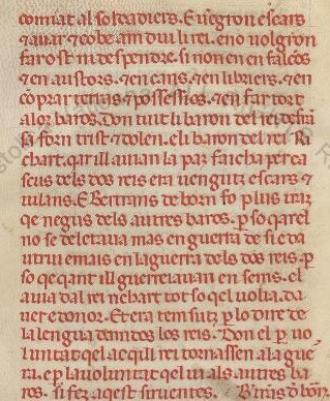 comiat al soldadiers. E vengron escars
⁊ auar ⁊ cobe am dui li rei. e no volgron
far ost ni despendre. si non en falcōs
⁊ en austors. ⁊ en cans. ⁊ en libriers. ⁊ en
cōprar terras ⁊ possessios. ⁊ en far tort
a lor baros. Don tuit li baron del rei de frā
ia forn trist ⁊ dolen. e li baron del rei Ri
chart. qar ill auian la paz faicha per ca
scus dels dos reis era uengutz escars ⁊
uilans. E Bertrans de born fo plus iratz
qe negus dels autres baros. p so qar el
no se deletaua mas en guerra de si e da
utrui e mais en la guerra dels dos reis. p
so qe qant ill guerreiauan en sems. el
auia dal rei richart tot so qel volia. da
uer e donor. Et era temsutz p lo dire de
la lengua dam dos los reis. Don el p uo
luntat qel ac qill rei tornassen a la gue
ra. e p la voluntat qel ui als autres ba
ros. si fez aqest siruentes. B'trās d' born